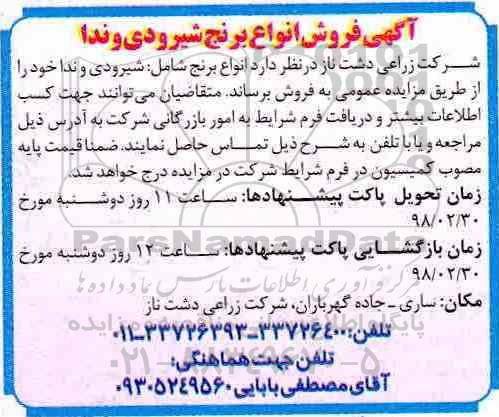 آگهی فروش انواع برنج شیرودی و ندا
شرکت زراعی دشت ناز در نظر دارد انواع برنج شامل: شیرودی و ندا خود را
از طریق مزایده عمومی به فروش برساند. متقاضیان می توانند جهت کسب
اطلاعات بیشتر و دریافت فرم شرایط به امور بازرگانی شرکت به آدرس ذیل
مراجعه و یا با تلفن به شرح ذیل تماس حاصل نمایند. ضمنا قیمت پایه
مصوب کمیسیون در فرم شرایط شرکت در مزایده درج خواهد شد.
زمان تحویل پاکت پیشنهادها: ساعت ۱۱ روز دوشنبه مورخ
۹۸/۰۲/۳۰
زمان بازگشایی پاکت پیشنهادها: ساعت ۱۲ روز دوشنبه مورخ
۹۸/۰۲/۳۰
مکان: ساری ـ جاده گهرباران، شرکت زراعی دشت ناز
تلفن: ۳۳۷۲۶۴۰۰ـ۳۳۷۲۶۳۹۳ـ۰۱۱
تلفن جهت هماهنگی:
آقای مصطفی بابایی ۰۹۳۰۵۲۴۹۵۶۰
ParsNamadData